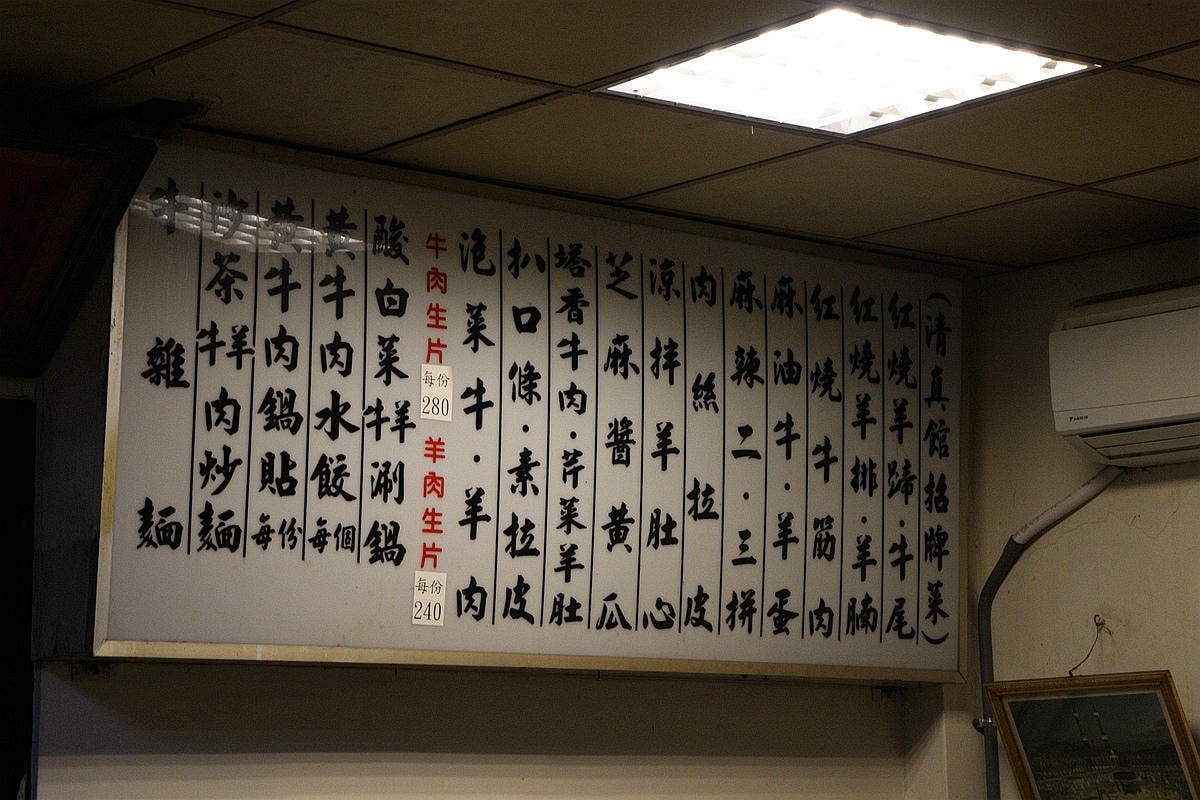 (清真館招牌菜)
紅燒羊蹄·牛尾
紅燒羊排·羊腩
紅燒牛筋肉
麻油牛·羊蛋
麻辣二·三拼
肉絲拉皮
涼拌羊肚心
芝麻醬黃瓜
塔香牛肉·芹菜羊肚
扒口條·素拉皮
泡菜牛·羊肉
牛肉生片 每份280 羊肉生片 每份240
酸白菜牛羊涮鍋
黃牛肉水餃每個
黃牛肉鍋貼每份
沙茶牛羊肉炒麵
牛雜麵
DAIKIN